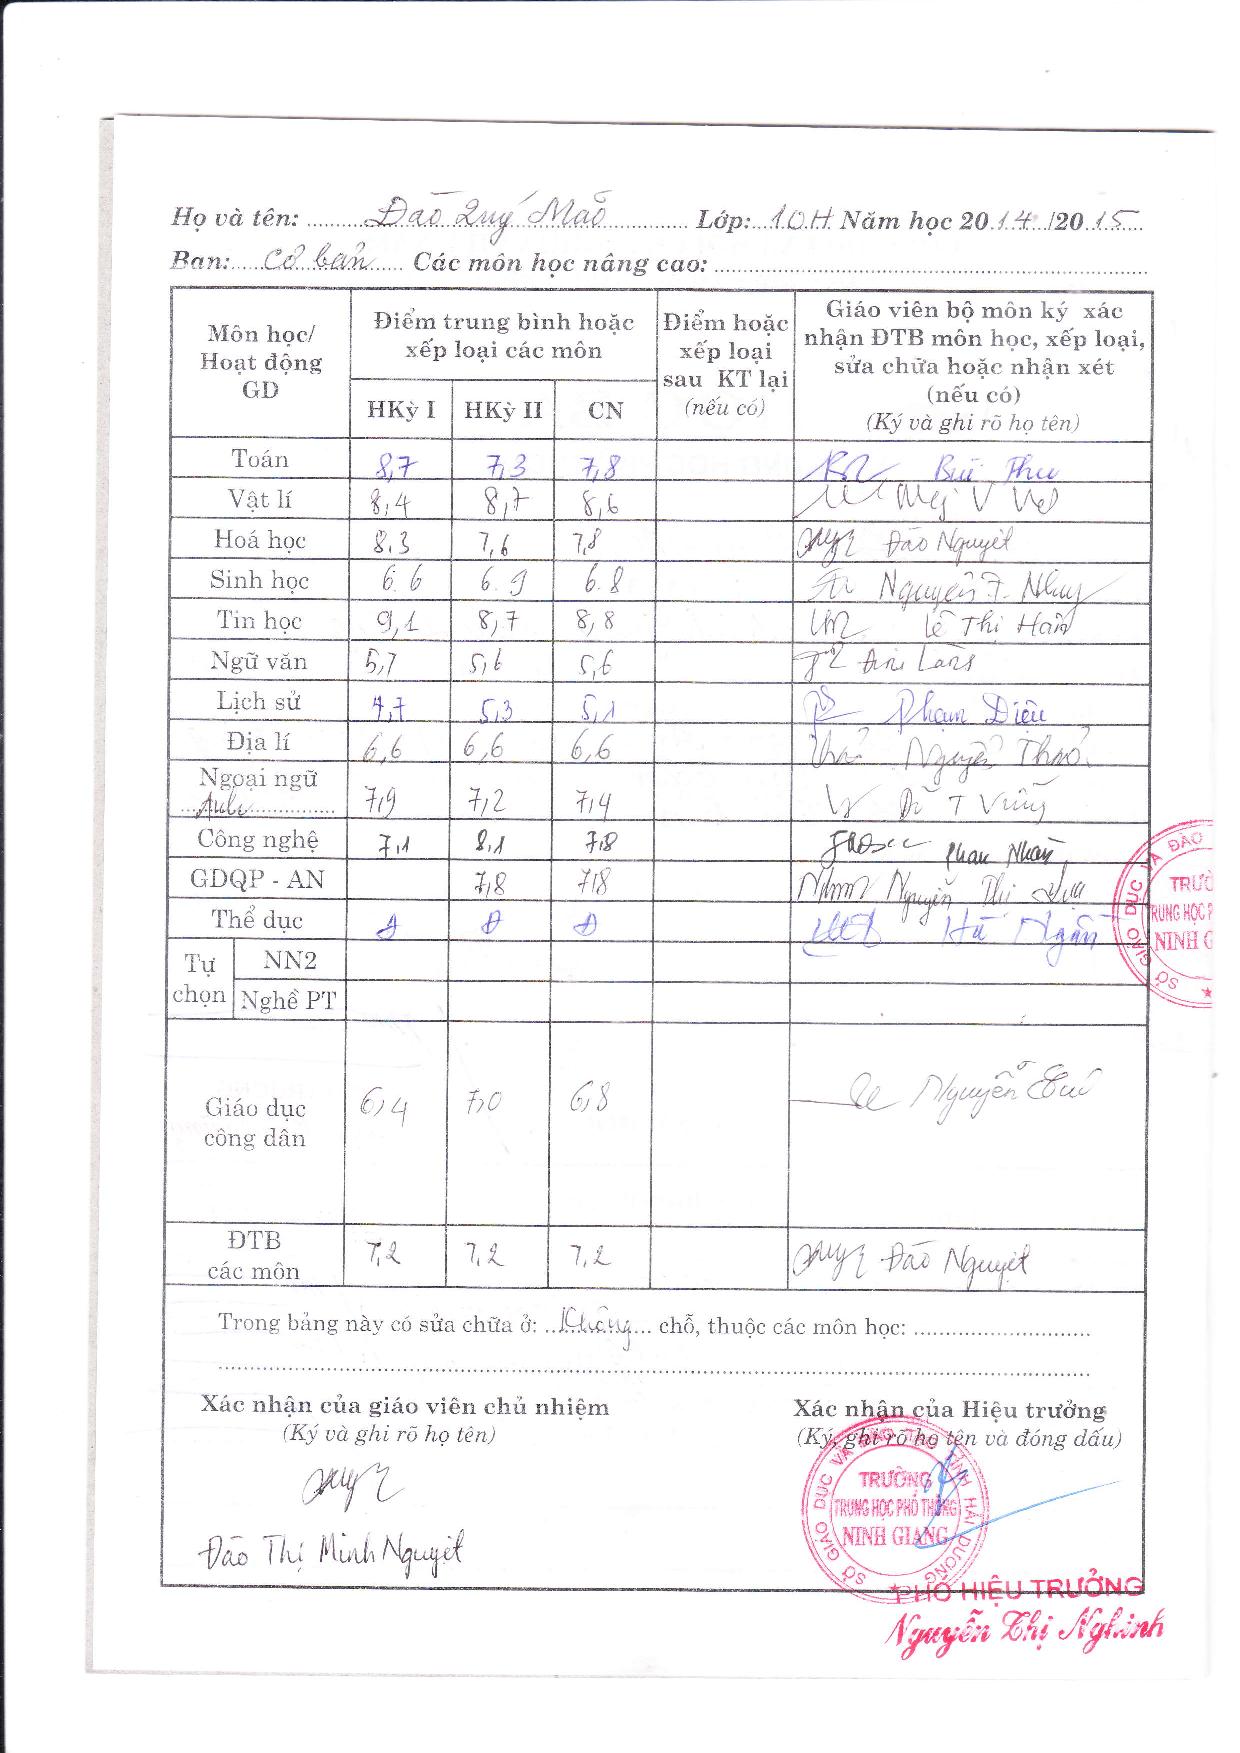 Họ và tên: Đào Quý Mão Lớp: 10H Năm học 2014/2015
Ban: cơ bản Các môn học nâng cao:
Môn học/ Hoạt động GD
Điểm trung bình hoặc xếp loại các môn
Điểm hoặc xếp loại sau KT lại (nếu có)
Giáo viên bộ môn ký xác nhận ĐTB môn học, xếp loại, sửa chữa hoặc nhận xét (nếu có) (Ký và ghi rõ họ tên)
HKỳ I HKỳ II CN
Toán 8,7 7,3 7,8 Bùi Thu
Vật lí 8,4 8,7 8,6
Hoá học 8.3 7,6 7,8 Đào Nguyệt
Sinh học 6.6 6.9 6.8 Nguyễn T. Nhung
Tin học 9,1 8,7 8,8 Lê Thị Hân
Ngữ văn 5,7 5,6 5,6
Lịch sử 4,7 5,3 5,1 Phạm Diệu
Địa lí 6,6 6,6 6,6 Nguyễn Thảo
Ngoại ngữ
Anh 7,9 7,2 7,4
Công nghệ 7,1 8,1 7,8 Phan Nhàn
GDQP - AN 7,8 7,8 Nguyễn Thị
Thể dục Đ Đ Đ Hà Ngân
Tự chọn NN2
Nghề PT
SỞ GIÁO DỤC VÀ ĐÀO
TRƯỜ
TRUNG HỌC P
NINH G
Giáo dục công dân 6,4 7,0 6,8 Nguyễn
ĐTB các môn 7,2 7,2 7,2 Đào Nguyệt
Trong bảng này có sửa chữa ở: Không chỗ, thuộc các môn học:
Xác nhận của giáo viên chủ nhiệm Xác nhận của Hiệu trưởng
(Ký và ghi rõ họ tên) (Ký, ghi rõ họ tên và đóng dấu)
SỞ GIÁO DỤC VÀ ĐÀO TẠO TỈNH HẢI DƯƠNG
TRƯỜNG
TRUNG HỌC PHỔ THÔNG
NINH GIANG
Đào Thị Minh Nguyệt
PHÓ HIỆU TRƯỞNG
Nguyễn Thị Nghinh